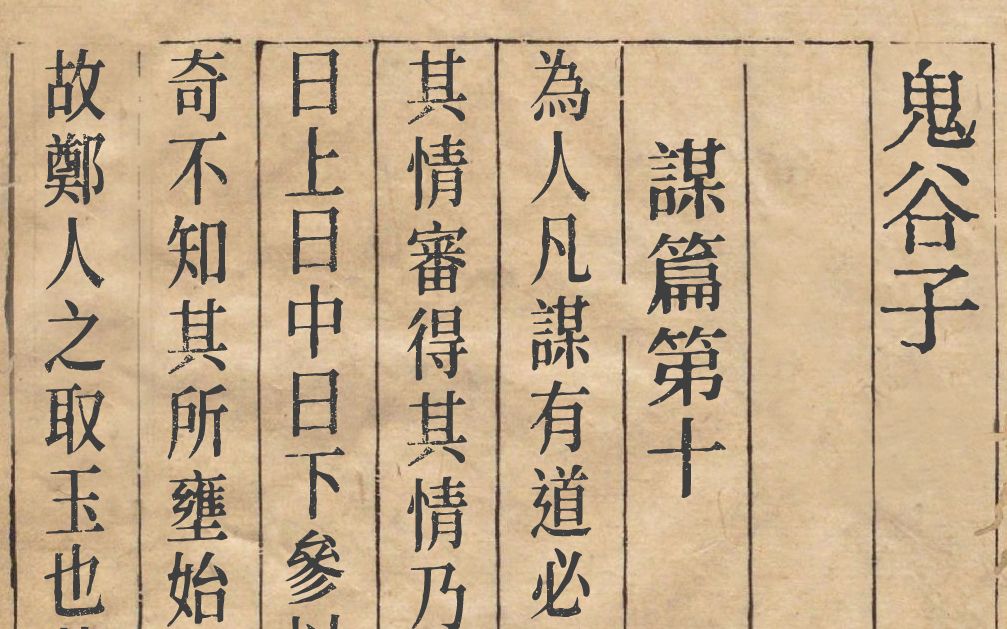 鬼谷子
謀篇第十
為人凡謀有道必
其情審得其情乃
曰上曰中曰下參
奇不知其所壅始
故鄭人之取玉也